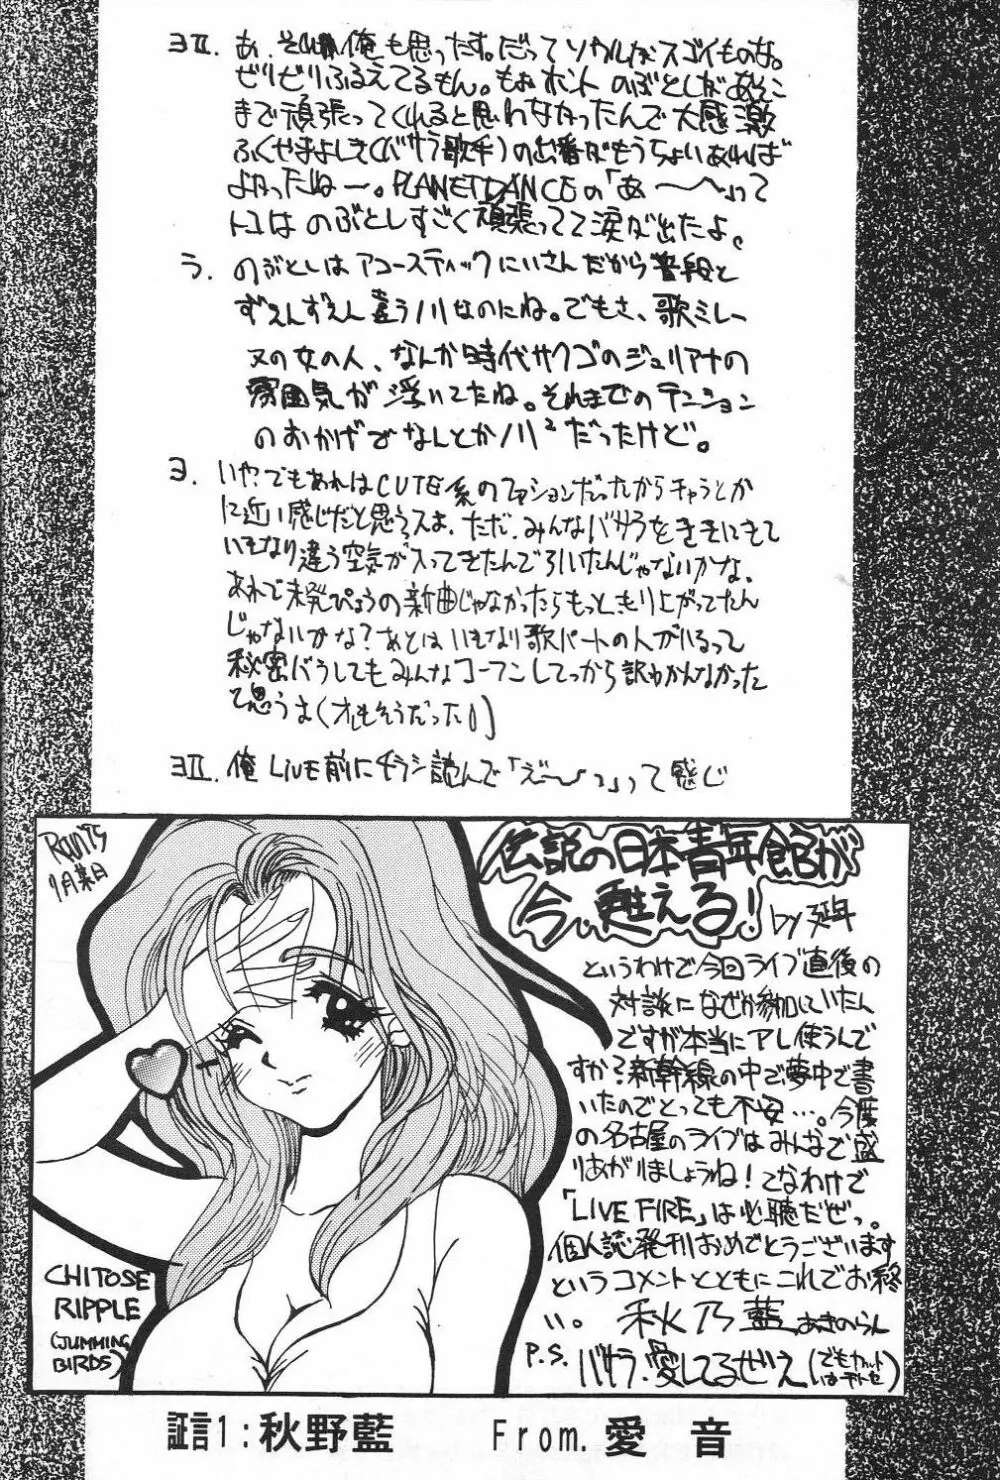 ヨⅡ. あ、それ俺も思ったす。だってソウルがスゴイものな。
ビリビリふるえてるもん。もぉホント のぶとしがあそこ
まで頑張ってくれると思わなかったんで大感激
ふくやまよしき(バサラ歌手)の出番がもうちょいあれば
よかったねー。PLANET DANCEの「あ〜〜」って
トコは のぶとしすごく頑張ってて涙が出たよ。
う. のぶとしはアコースティックにいさんだから普段と
ずぇんずぇん違うノリなのにね。でもさ、歌ミレー
ヌの女の人、なんか時代サクゴのジュリアナの
雰囲気が 浮いてたね。それまでのテンション
のおかげでなんとかノリ²だったけど。
ヨ. いや?でもあれはCUTE系のファションだったからキャラとか
に近い感じだと思うスよ、ただ、みんなバサラをききにきて
いきなり違う空気が入ってきたんで引いたんじゃないかな、
あれで未発ぴょうの新曲じゃなかったらもっともり上がってたん
じゃないかな?あとはいきなり歌パートの人がいるって
秘密バラしてもみんなコーフンしてっから訳わかんなかった
て思うよ(オレもそうだったり)
ヨⅡ. 俺 LIVE前にチラシ読んで「え〜〜っ」って感じ
9月某日
伝説の日本青年館が
今、甦える!
by 延年
というわけで今回ライブ直後の
対談になぜか参加していたん
ですが本当にアレ使うんで
すか?新幹線の中で夢中で書
いたのでとっても不安…。今度
の名古屋のライブはみんなで盛
りあがりましょうね!てなわけで
「LIVE FIRE」は必聴だぜっ。
個人誌発刊おめでとうございます
というコメントとともにこれでお終
い。 秋乃藍 あきのらん
P.S. バサラ、愛してるぜぃえ
CHITOSE
RIPPLE
(JUMMING
BIRDS)
証言1:秋野藍 From. 愛 音